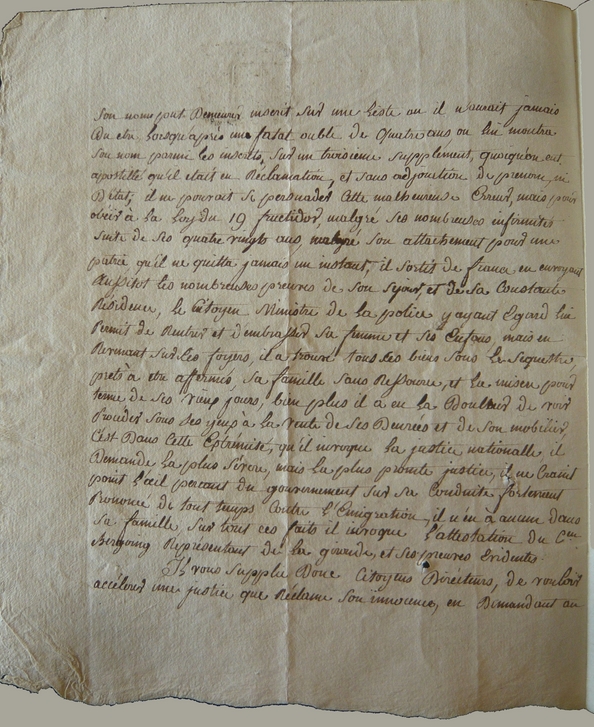 son nom peut Demeurer inscrit sur une Liste ou il n'aurait jamais
Du etre Lorsqu'après un fatal oublie de Quatre ans on lui montra
son nom parmi les inscrits, sur un troisieme supplement, quoiqu'on eut
apostillé qu'il etait en Réclamation, et sans adjonction de prenom, ni
D'état, il ne pouvait se persuader Cette malheureuse Erreur, mais pour
obéir à la Loy du 19 fructidor, malgré ses nombreuses infirmités
suite de ses quatre vingts ans, malgré son attachement pour une
patrie qu'il ne quitta jamais un instant, il sortit de france en envoyant
Aussitot les nombreuses preuves de son sejour, et de sa Constante
Residence, le Citoyen Ministre de la police y ayant Egard lui
Permit de Rentrer et d'embrasser sa femme et ses Enfans, mais en
Revenant sur ses foyers, il a trouvé tous ses biens sous le sequestre
prets à etre affermés, sa famille sans Ressource, et la misere pour
terme de ses vieux jours, bien plus il à eu la Douleur de voir
Proceder sous ses yeux à la vente de ses Denrées et de son mobilier,
C'est Dans Cette Extrémité, qu'il invoque la justice nationalle il
Demande la plus sévere, mais la plus promte justice, il ne Craint
point l'œil percant du gouvernement sur sa Conduite
Prononcé de tout temps Contre l'Emigration, il n'en à aucun dans
sa famille sur tous ces faits il invoque l'attestation du C.en
Bergoing Représentant de la gironde, et ses preuves Evidentes.
Il vous supplie Donc Citoyens Directeurs, de vouloir
accélerer une justice que Réclame son innocence, en Demandant au